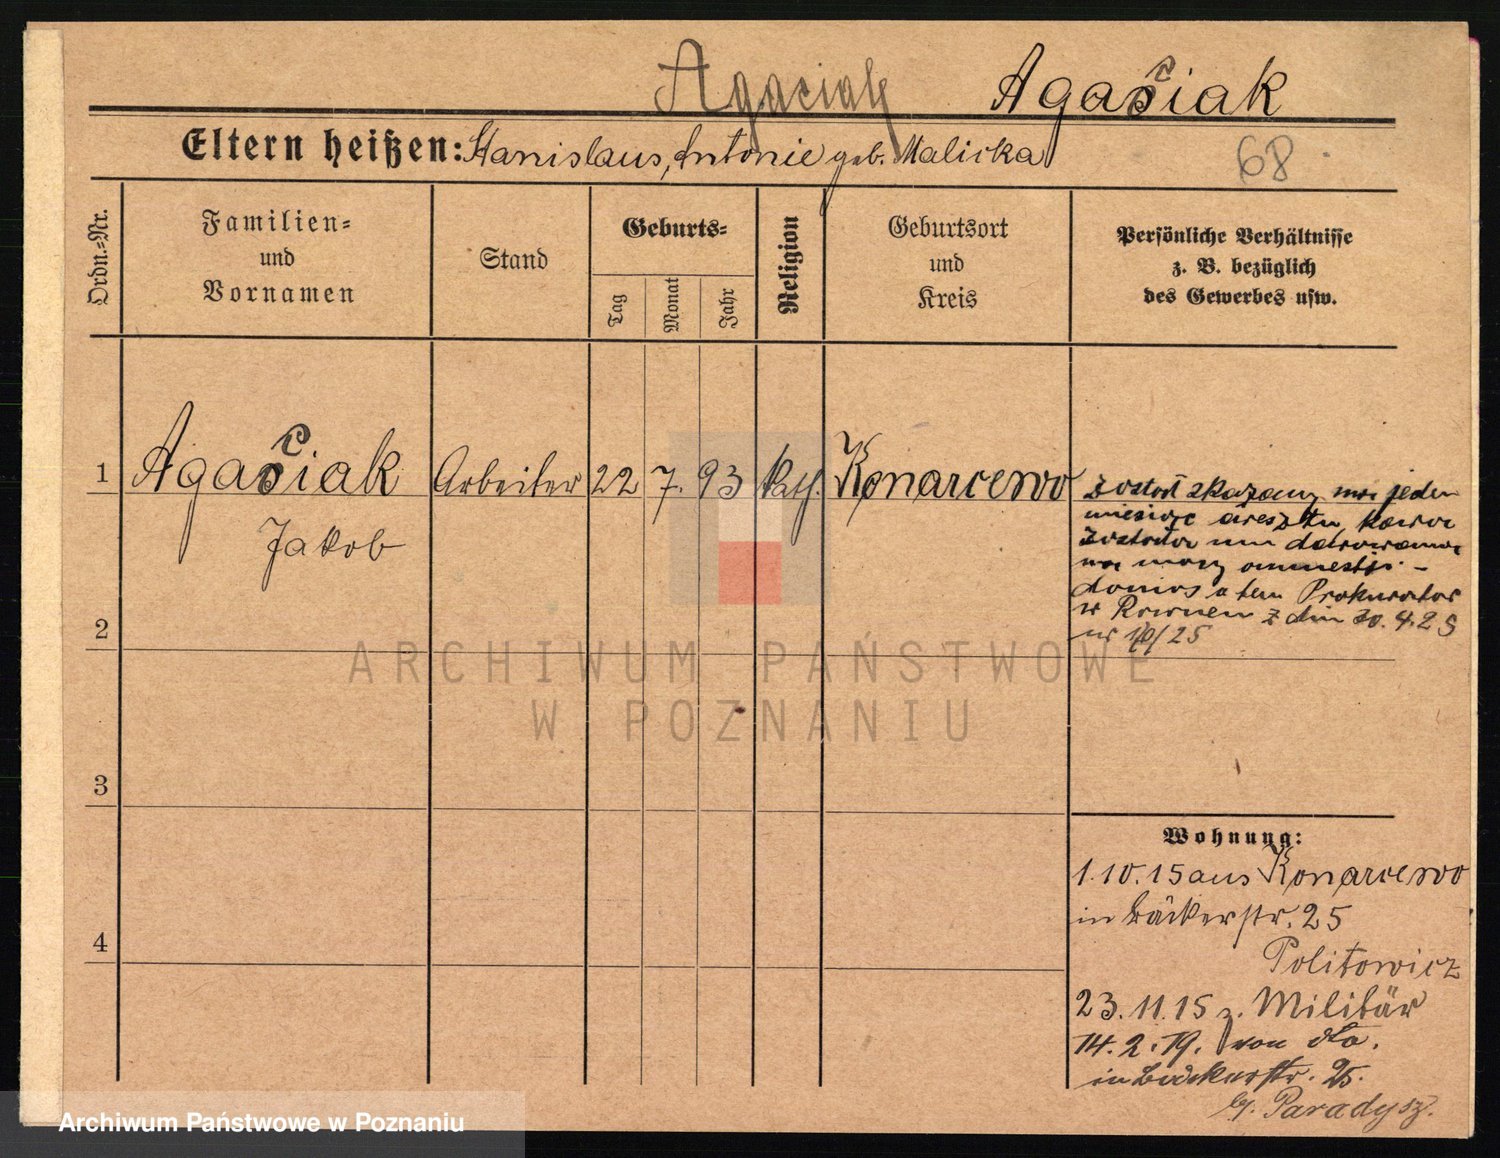 Agaciak Agaciak
Eltern heißen: Stanislaus, Antonie geb. Malicka
68
Ordn.=Nr.
Familien=
und
Vornamen
Stand
Geburts=
Tag
Monat
Jahr
Religion
Geburtsort
und
Kreis
Persönliche Verhältnisse
z. B. bezüglich
des Gewerbes usw.
1 Agaciak Arbeiter 22 7. 93 kath. Konarcewo
Jakob
został skazany na jeden
miesiąc aresztu, kara
została mu darowana
na mocy amnestji -
doniós o tem Prokurator
w z dnia 30. 4. 25
nr
2
3
4
Wohnung:
1.10.15 aus Konarcewo
in Bäckerstr. 25
Politowicz
23.11.15 z. Militär
14.2.19. von dto.
in Bäckerstr. 25.
b/. Paradysz.
ARCHIWUM PAŃSTWOWE
W POZNANIU
Archiwum Państwowe w Poznaniu